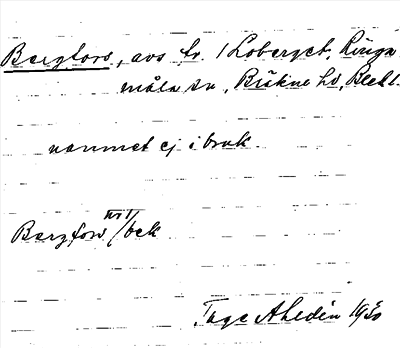 Bergfors, avs fr. 1 Loberget, Ringa-
måla sn, Bräkne hd, Blek l.
namnet ej i bruk.
Bergfors VIII/bek
Tage Ahldén 1930